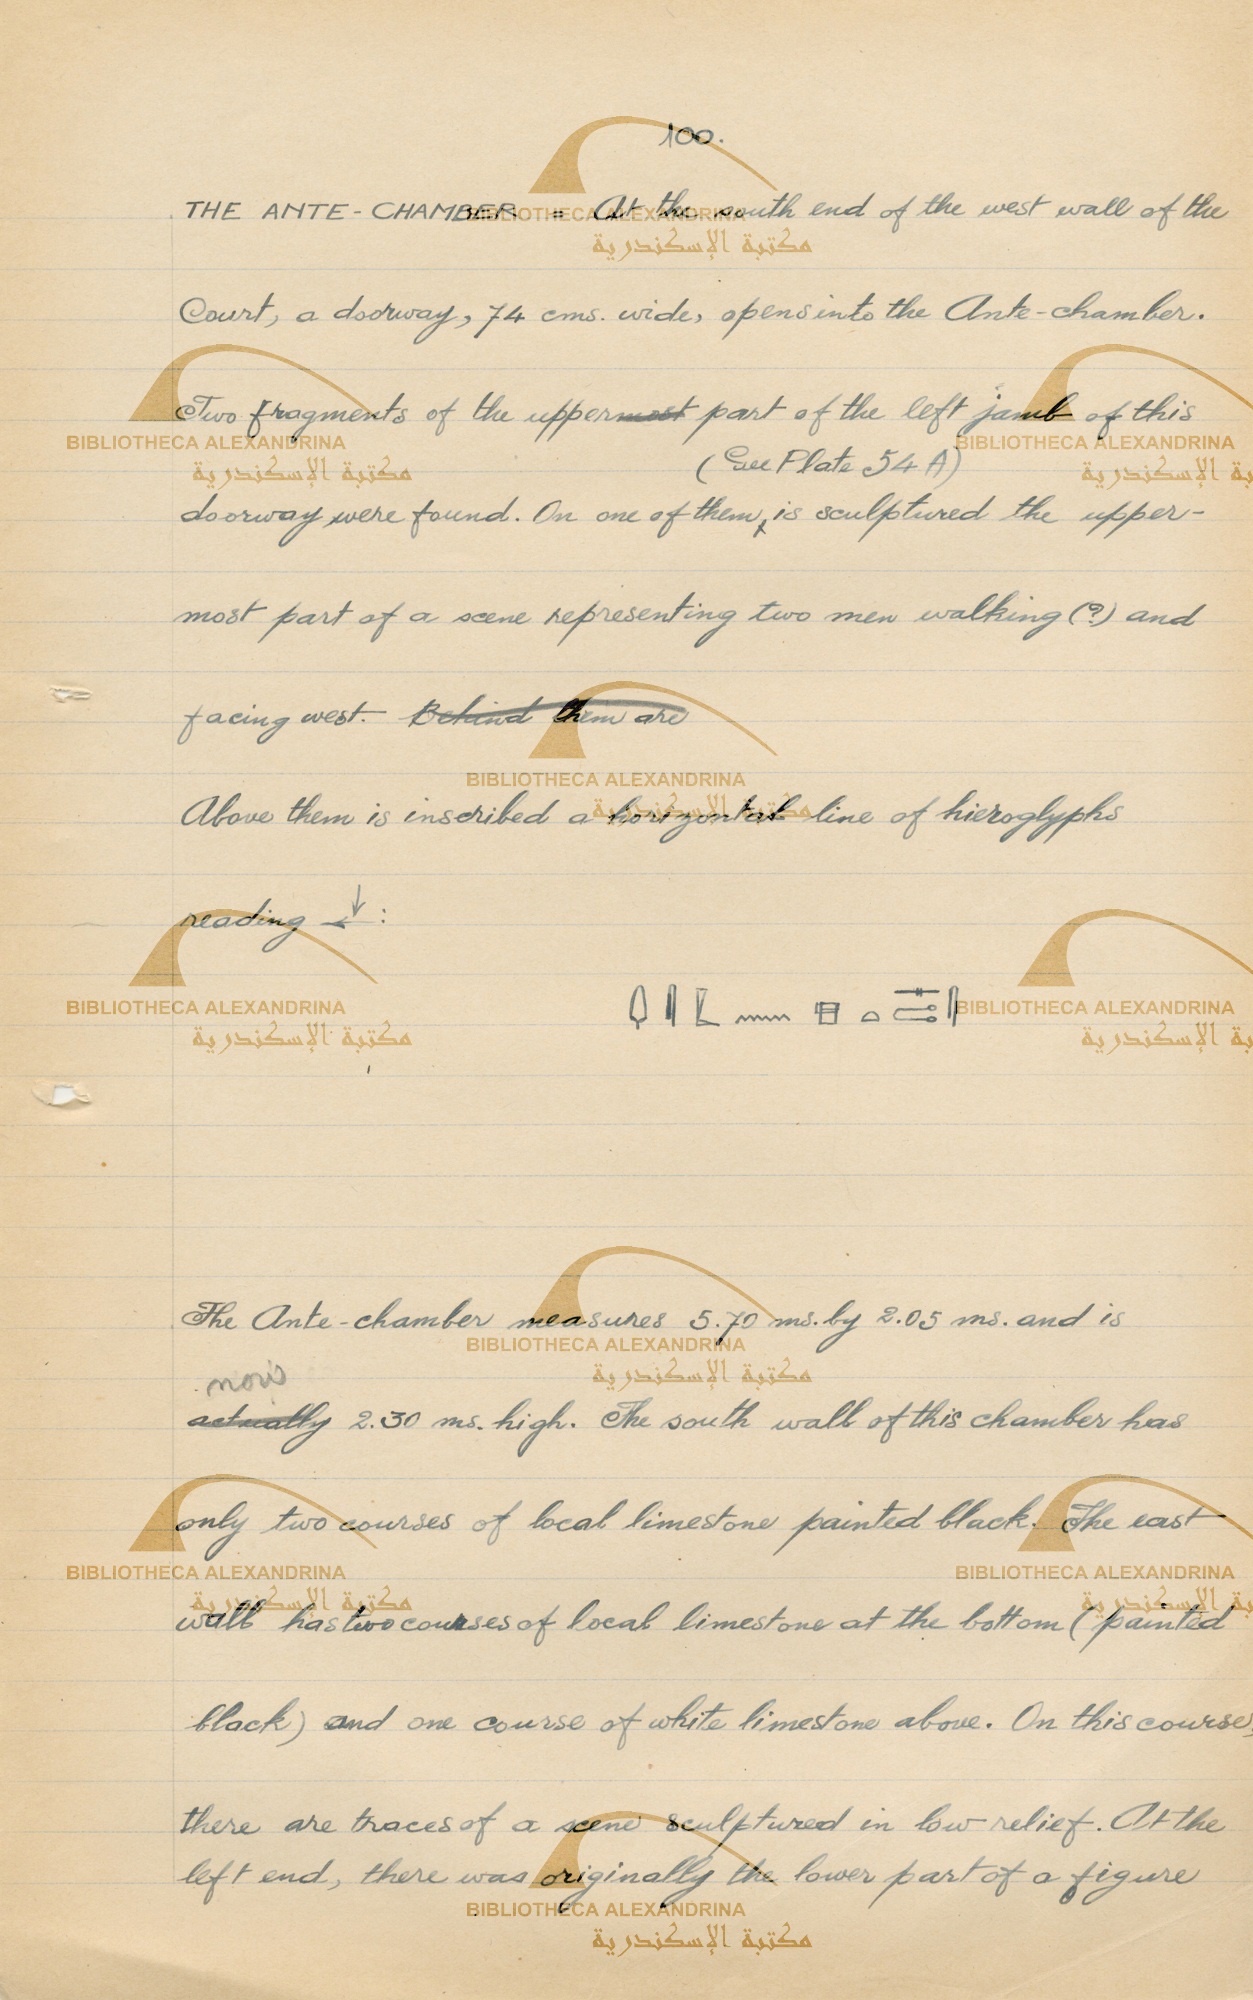 100.
THE ANTE-CHAMBER = At the south end of the west wall of the
Court, a doorway, 74 cms. wide, opens into the Ante-chamber.
Two fragments of the uppermost part of the left jamb of this
(See Plate 54 A)
doorway were found. On one of them, is sculptured the upper-
most part of a scene representing two men walking (?) and
facing west. Behind them are
Above them is inscribed a horizontal line of hieroglyphs
reading ↓← :
The Ante-chamber measures 5.70 ms. by 2.05 ms. and is
now
actually 2.30 ms. high. The south wall of this chamber has
only two courses of local limestone painted black. The east
wall has two courses of local limestone at the bottom (painted
black) and one course of white limestone above. On this course,
there are traces of a scene sculptured in low-relief. At the
left end, there was originally the lower part of a figure
BIBLIOTHECA ALEXANDRINA
مكتبة الإسكندرية